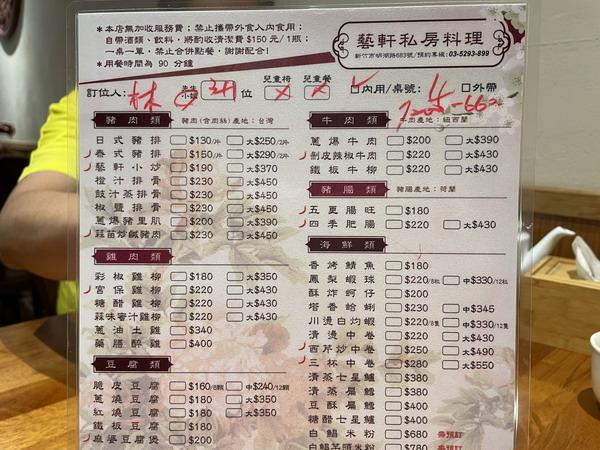 *本店無加收服務費；禁止攜帶外食入內食用；
自帶酒類、飲料，將酌收清潔費$150元/1瓶；
一桌一單，禁止合併點餐，謝謝配合！
*用餐時間為 90 分鐘
藝軒私房料理
新竹市明湖路683號/預約專線:03-5293-899
訂位人：林 先生 小姐 位 兒童椅 兒童餐 內用/桌號： 外帶
豬肉類 豬肉(含肉絲)產地：台灣
日式豬排 $130/片 大$250/2片
泰式豬排 $150/片 大$290/2片
藝軒小炒 $190 大$370
橙汁排骨 $230 大$450
豉汁蒸排骨 $230 大$450
椒鹽排骨 $230 大$450
蔥爆豬里肌 $200 大$390
蒜苗炒鹹豬肉 $230 大$450
雞肉類
彩椒雞柳 $180 大$350
宮保雞柳 $220 大$430
糖醋雞柳 $220 大$430
蒜味蜜汁雞柳 $220 大$430
蔥油土雞 $340
藥膳醉雞 $400
豆腐類
脆皮豆腐 $160/8顆 中$240/12顆
蔥燒豆腐 $180 大$350
紅燒豆腐 $180 大$350
鐵板豆腐 $180
麻婆豆腐煲 $200
牛肉類 牛肉產地：紐西蘭
蔥爆牛肉 $200 大$390
剝皮辣椒牛肉 $220 大$430
鐵板牛柳 $220 大$430
豬腸類 豬腸產地：荷蘭
五更腸旺 $180
四季肥腸 $220 大$430
海鮮類
香烤鯖魚 $180
鳳梨蝦球 $220/8粒 中$330/12粒
酥炸蚵仔 $200
塔香蛤蜊 $230 中$345
川燙白灼蝦 $220/8隻 中$330/12隻
清燙中卷 $220 大$430
西芹炒中卷 $250 大$490
三杯中卷 $280 大$550
清蒸七星鱸 $380
清蒸扁鱈 $380
豆酥扁鱈 $400
糖醋七星鱸 $400
白鯧米粉 $680 需預訂
白鯧芋頭米粉 $780 需預訂